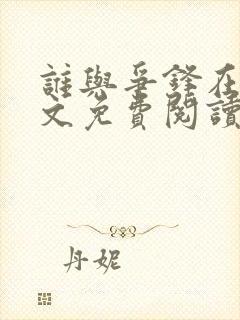 誰與爭鋒在
文免費閱讀
丹妮